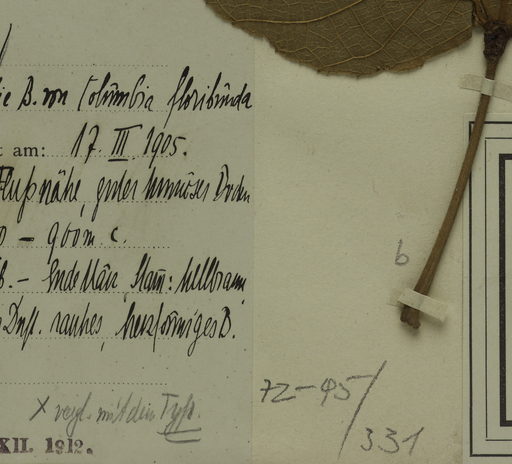 B. von Columbia floribunda
t am: 17. III. 1905.
Flußnähe, guter humöser Boden
– 900m. c.
b. – Ende März, Stam: hellbraun,
Duft. rauhes, herzförmiges B.
b
72-95/
331
X vergl. mit dem Typ.
XII. 1912.